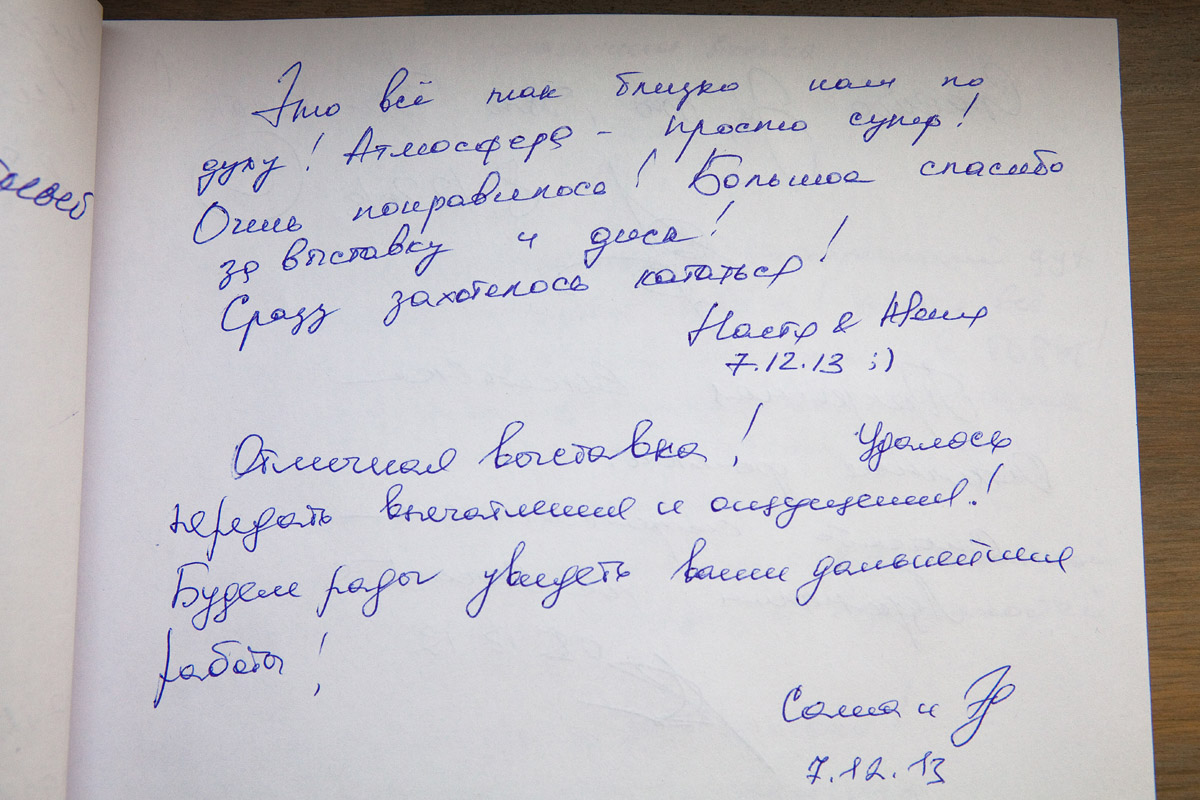 Это всё так близко нам по
духу! Атмосфера - просто супер!
Очень понравилось! Большое спасибо
за выставку и диск!
Сразу захотелось кататься!
Настя & Женя
7.12.13 ;)
Отличная выставка! Удалось
передать впечатления и ощущения!
Будем рады увидеть ваши дальнейшие
работы!
Саша и
7.12.13